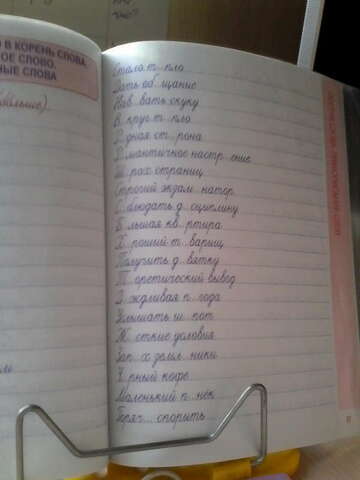 О В КОРЕНЬ СЛОВА,
ОЕ СЛОВО.
НЫЕ СЛОВА
Стало т..пло
Дать об..щание
Нав..вать скуку
В..круг т..пло
Р..дная ст..рона
Р..мантичное настр..ение
Ш..рох страниц
Строгий экзам..натор
С..блюдать д..сциплину
Б..льшая кв..ртира
Х..роший т..варищ
Получить д..вятку
Т..оретический вывод
Д..ждливая п..года
Услышать ш..пот
Ж..сткие условия
Зап..х земл..ники
Ч..рный кофе
Маленький п..нёк
Горяч.. спорить